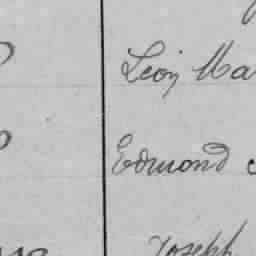 Léon Ma
Edmond
Joseph